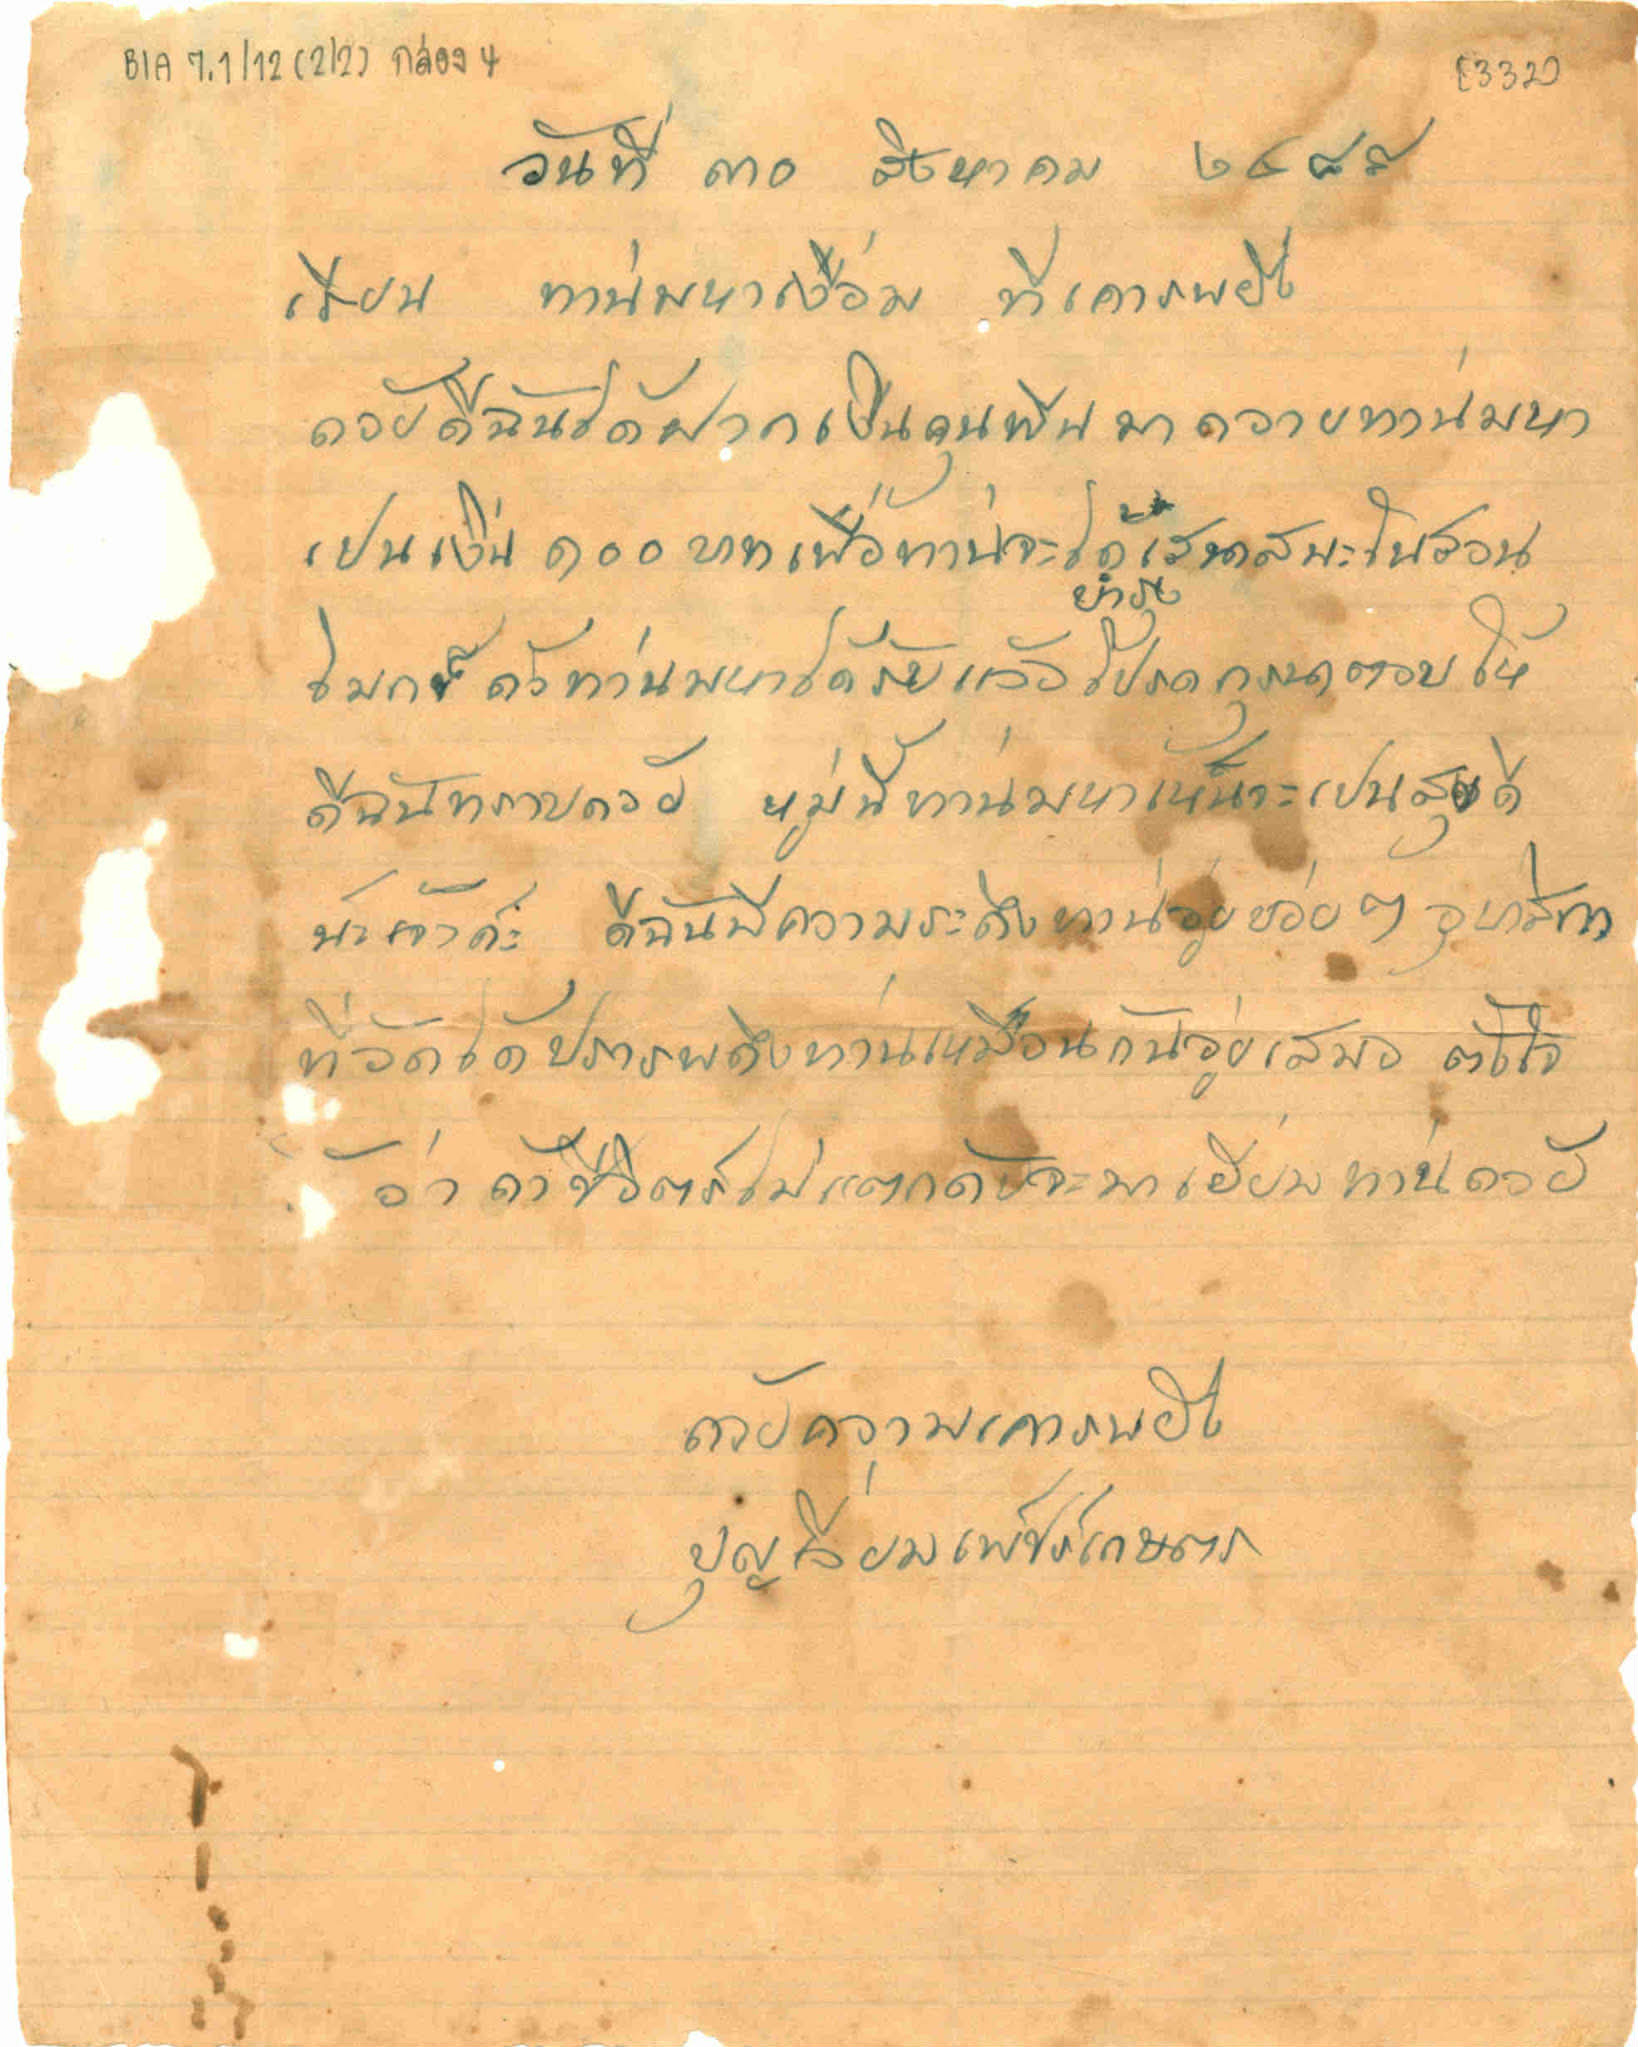 BIA 7.1/12 (2/2) กล่อง 4
[332]
วันที่ ๓๐ สิงหาคม ๒๔๘๙
เรียน ท่านมหาเงื่อม ที่เคารพยิ่ง
ดวัยดิฉันได้ฝากเงินคุนพินมาถวายทานมหา
เปนเงิน ๑๐๐ บาทเพื่อท่านจะได้ ในสวน
บำรุง
โมกข์ ถ้าท่านมหาได้รับแล้วโปรดกรุณาตอบให้
ดิฉันทราบดวัย หมู่นี้ท่านมหาเห็นจะเปนสุขดี
นะเจ้าค่ะ ดิฉันมีความระถึงท่านอยู่บ่อยๆ อุบาสิกา
ที่วัดได้ปรารพถึงท่านเหมือนกันอยู่เสมอ ตั้งใจ
ว่า ถ้าชีวิตร์ไม่แตกดับจะมาเยี่ยมท่านดวัย
ดวัยความเคารพยิ่ง
บุญเลี่ยม เพ็ชร์เกษตร